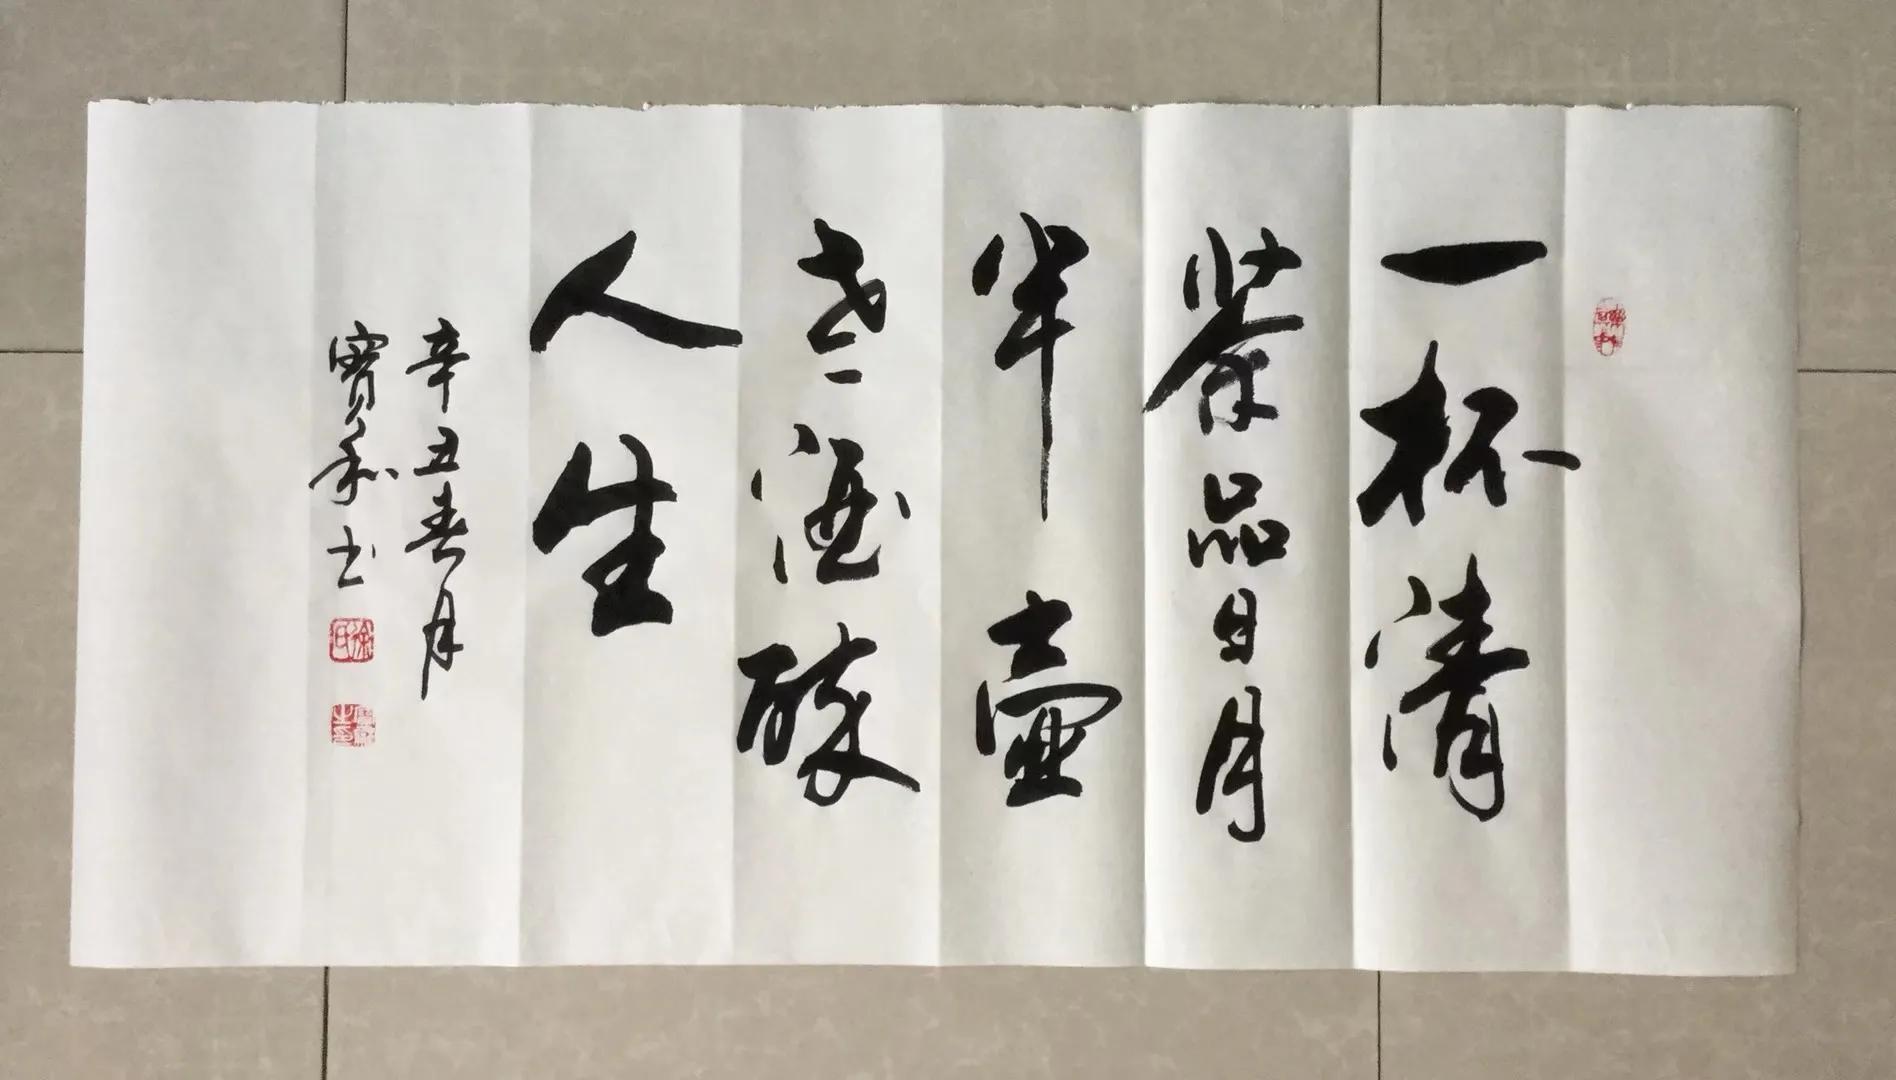 一杯清
茶品日月
半壶
老酒醉
人生
辛丑春月
寶和书
徐氏